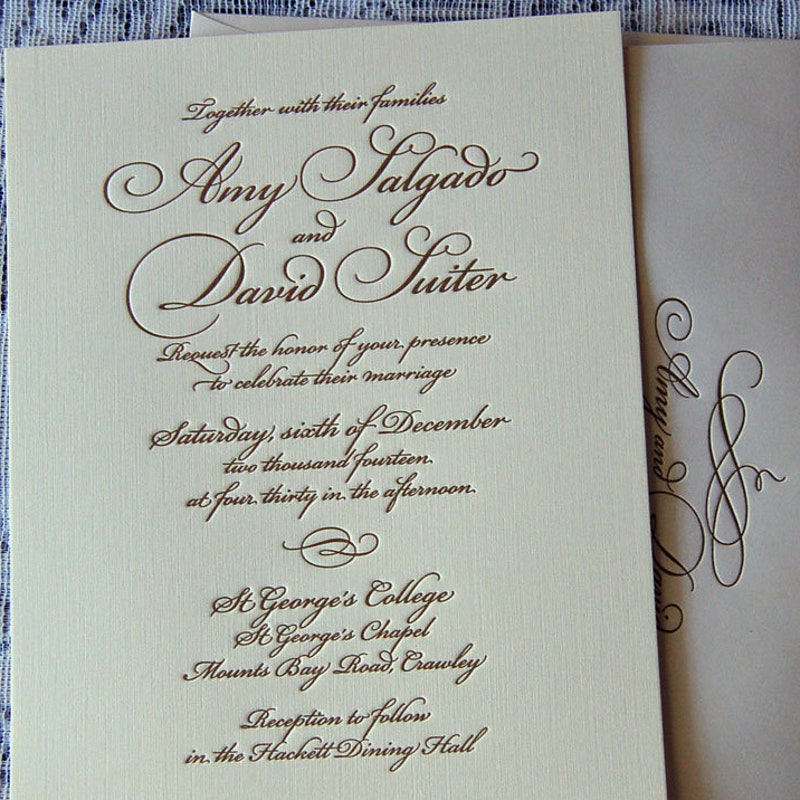 Together with their families
Amy Salgado
and
David Suiter
Request the honor of your presence
to celebrate their marriage
Saturday, sixth of December
two thousand fourteen
at four thirty in the afternoon
St George's College
St George's Chapel
Mounts Bay Road, Crawley
Reception to follow
in the Hackett Dining Hall
Amy and